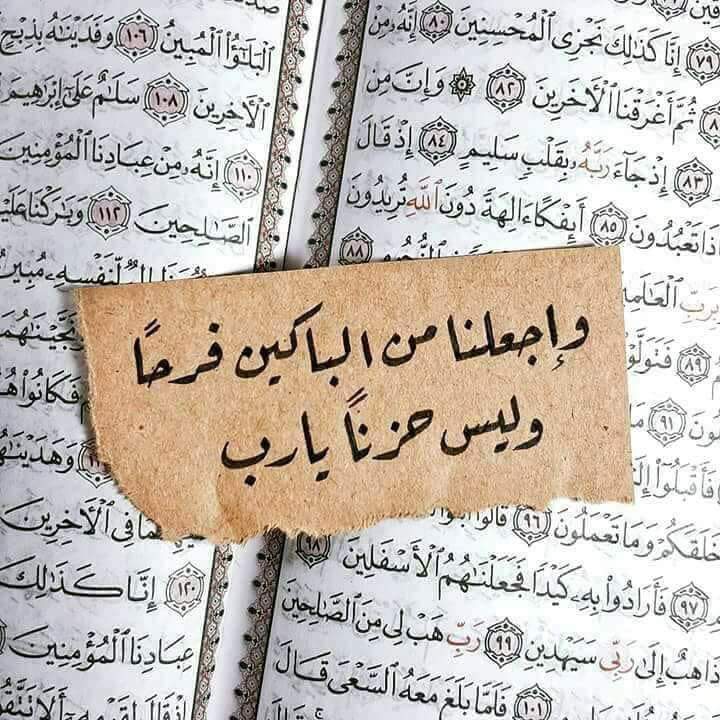 ﴿٧٩﴾ إِنَّا كَذَٰلِكَ نَجْزِى ٱلْمُحْسِنِينَ ﴿٨٠﴾ إِنَّهُۥ مِنْ
ثُمَّ أَغْرَقْنَا ٱلْأَخَرِينَ ﴿٨٢﴾ ۞ وَإِنَّ مِن
﴿٨٣﴾ إِذْ جَآءَ رَبَّهُۥ بِقَلْبٍ سَلِيمٍ ﴿٨٤﴾ إِذْ قَالَ
تَعْبُدُونَ ﴿٨٥﴾ أَئِفْكًا ءَالِهَةً دُونَ ٱللَّهِ تُرِيدُونَ
﴿٨٨﴾
وإجعلنا من الباكين فرحًا
وليس حزنًا يارب
﴿٨٩﴾ فَتَوَلَّوْا
﴿٩١﴾ مَا
فَأَقْبَلُوٓا۟
خَلَقَكُمْ وَمَا تَعْمَلُونَ ﴿٩٦﴾ قَالُوا۟
﴿٩٧﴾ فَأَرَادُوا۟ بِهِۦ كَيْدًا فَجَعَلْنَٰهُمُ ٱلْأَسْفَلِينَ ﴿٩٨﴾
ذَاهِبٌ إِلَىٰ رَبِّى سَيَهْدِينِ ﴿٩٩﴾ رَبِّ هَبْ لِى مِنَ ٱلصَّٰلِحِينَ
﴿١٠١﴾ فَلَمَّا بَلَغَ مَعَهُ ٱلسَّعْىَ قَالَ
ٱلْبَلَٰٓؤُا۟ ٱلْمُبِينُ ﴿١٠٦﴾ وَفَدَيْنَٰهُ بِذِبْحٍ
ٱلْأَخِرِينَ ﴿١٠٨﴾ سَلَٰمٌ عَلَىٰٓ إِبْرَٰهِيمَ
﴿١١٠﴾ إِنَّهُۥ مِنْ عِبَادِنَا ٱلْمُؤْمِنِينَ
ٱلصَّٰلِحِينَ ﴿١١٢﴾ وَبَٰرَكْنَا
لِّنَفْسِهِۦ مُبِينٌ
فَكَانُوا۟
وَهَدَيْنَٰهُمَا
فِى ٱلْأَخِرِينَ
﴿١٢٠﴾ إِنَّا كَذَٰلِكَ
عِبَادِنَا ٱلْمُؤْمِنِينَ
إِذْ قَالَ لِقَوْمِهِۦٓ أَلَا